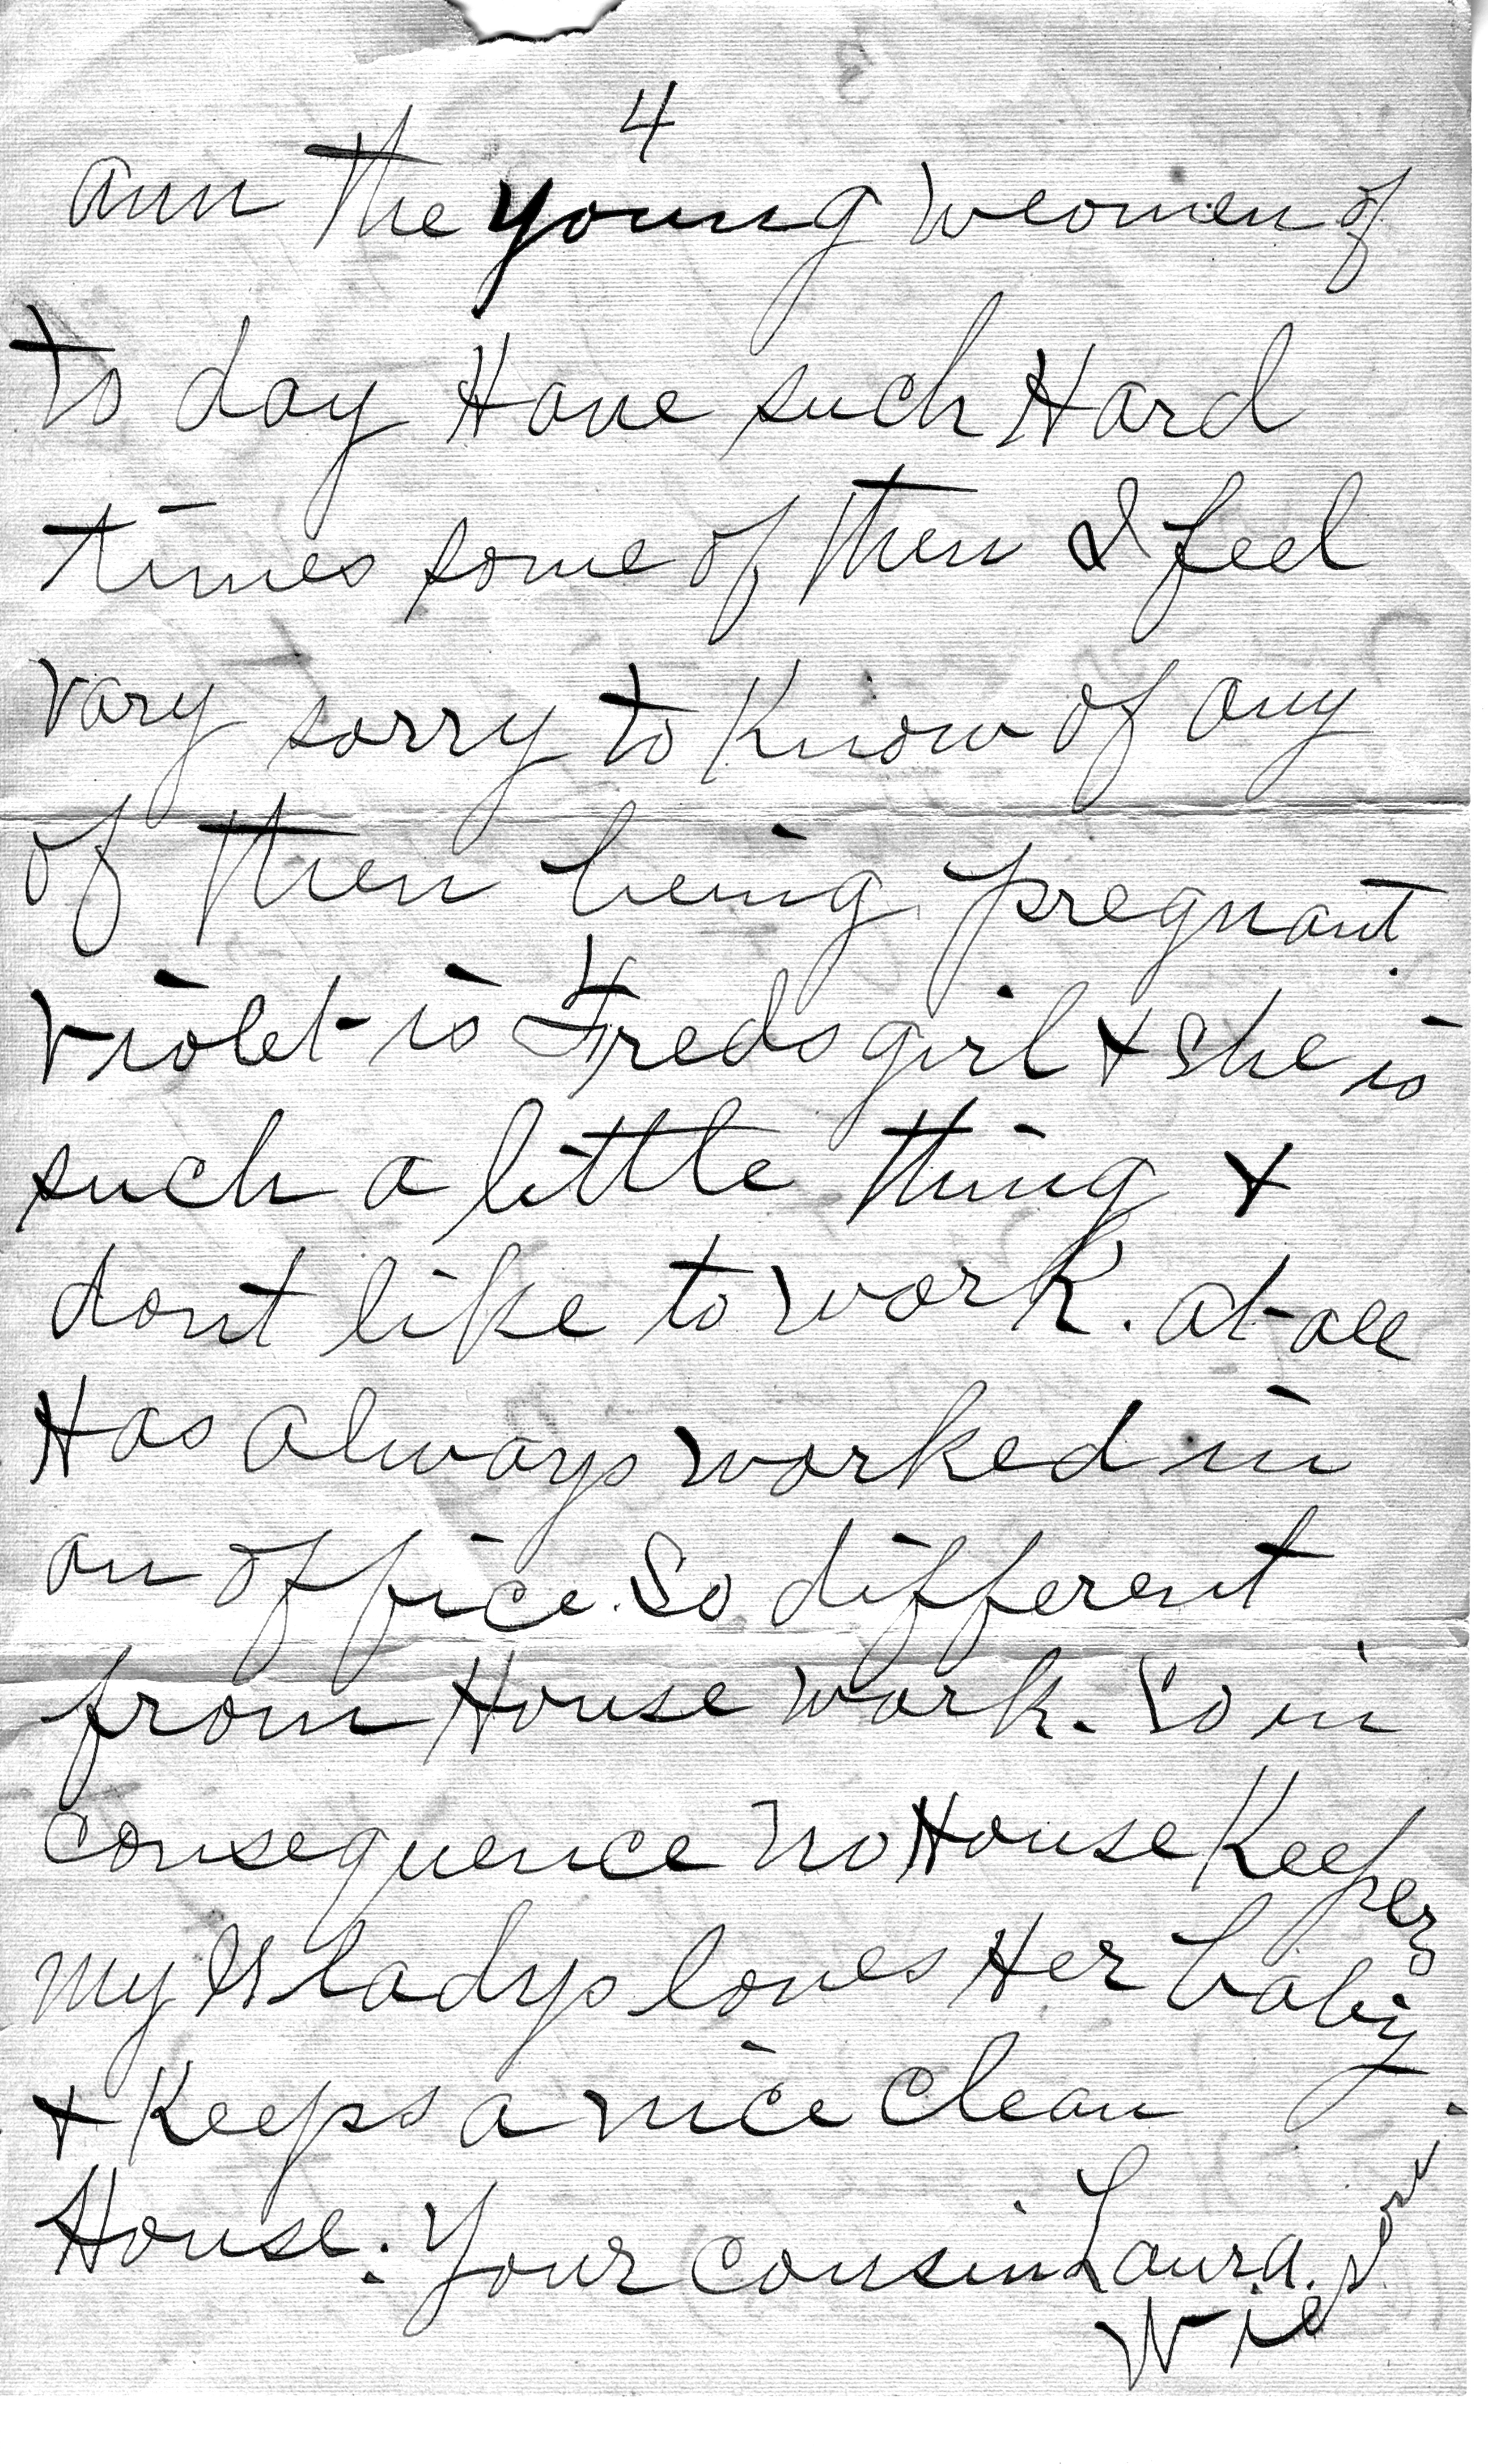 4
ann the young weomen of
to day Have such Hard
times some of then I feel
vary sorry to Know of any
of then being pregnant.
Violet is Freds girl & she is
such a little thing &
dont like to work. at all
Has always worked in
an office. So different
from House work. So in
consequence no House Keeper
my Gladys loves Her baby
& Keeps a nice clean
House. Your cousin Laura.